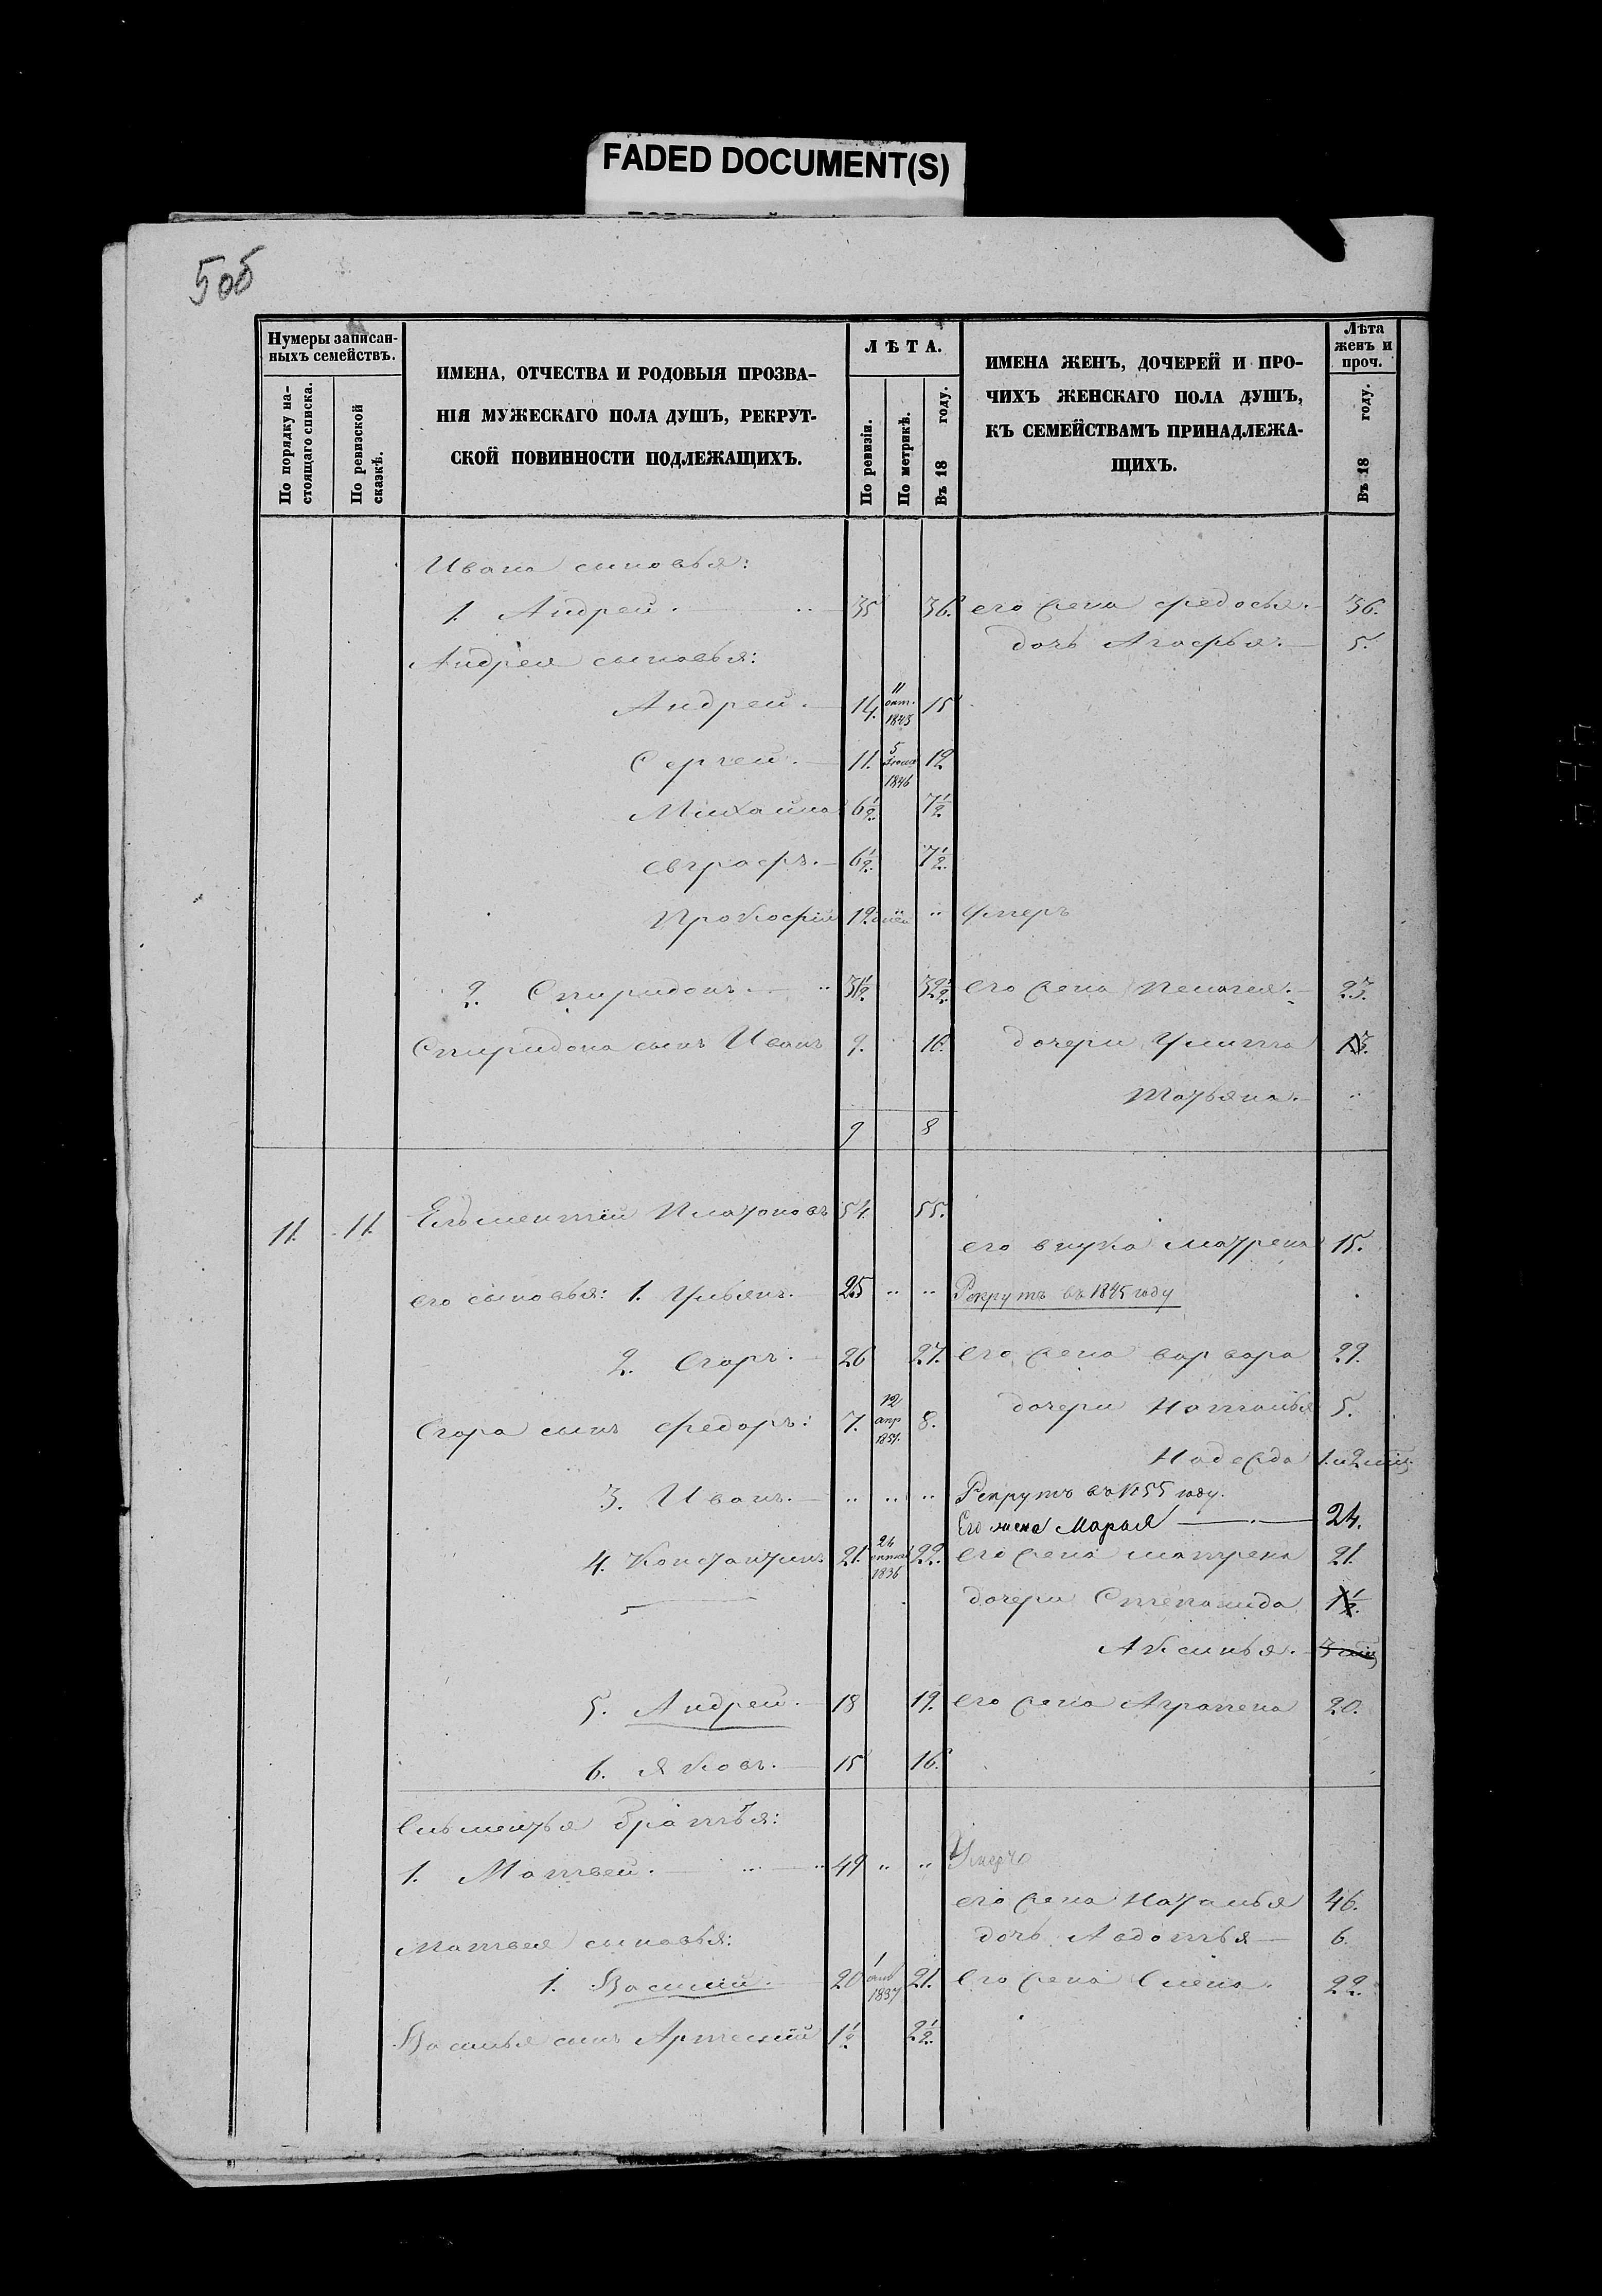 FADED DOCUMENT(S)
50б
Нумеры записан-
ныхъ семействъ.
По порядку на-
стоящаго списка.
По ревизской
сказкѣ.
ИМЕНА, ОТЧЕСТВА И РОДОВЫЯ ПРОЗВА-
НІЯ МУЖЕСКАГО ПОЛА ДУШЪ, РЕКРУТ-
СКОЙ ПОВИННОСТИ ПОДЛЕЖАЩИХЪ.
ЛѢТА.
По ревизіи.
По метрикѣ.
Въ 18 году.
ИМЕНА ЖЕНЪ, ДОЧЕРЕЙ И ПРО-
ЧИХЪ ЖЕНСКАГО ПОЛА ДУШЪ,
КЪ СЕМЕЙСТВАМЪ ПРИНАДЛЕЖА-
ЩИХЪ.
Лѣта
женъ и
проч.
Въ 18 году.
Ивана сыновья:
1. Андрей. 35 36. его жена Федосья. 36.
дочь Агафья. 5.
Андрея сыновья:
Андрей. 14. 11 окт. 1843 15
Сергей. 11. 5 1846 12
Михаила 6½ 7½
Евграфъ. 6½ 7½
Прокофій 12 дней " Умеръ
2. Спиридонъ. " 31½ 32½ его жена Пелагея. 23.
Спиридона сынъ Иванъ 9. 10. дочери Улита 13.
Татьяна. "
9 8
11. 11. Елементій Платоновъ 54. 55.
его внука Матрена 15.
его сыновья: 1. Ульянъ. 25 " " Рекрутъ въ 1845 году
2. Егоръ. 26 27. его жена Варвара 29.
Егора сынъ Федоръ: 7. 12 апр 1851. 8. дочери Наталья 5.
Надежда 1. и 2 мѣс
3. Иванъ. " " " Рекрутъ въ 1855 году.
Его жена Марья 24.
4. Константинъ 21. 24 1836 22. его жена Матрена 21.
дочери Степанида 1½.
Аксинья. 3 мѣс
5. Андрей. 18 19. его жена Аграпена 20.
6. Яковъ. 15 16.
Елементья братья:
1. Матвей. " 49 " " Умеръ
его жена Наталья 46.
Матвея сыновья: дочь Авдотья 6.
1. Василій. 20 1 1837 21. его жена Елена. 22.
Василья сынъ Артемій 1½ 2½